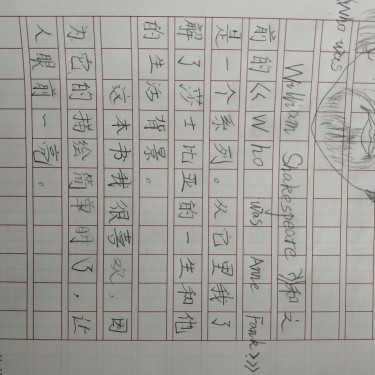 Who was
William Shakespeare》和之
前的《Who was Anne Frank》
是一个系列。从它里我了
解了莎士比亚的一生和他
的生活背景。
这本书我很喜欢，因
为它的描绘简单明了，让
人眼前一亮。